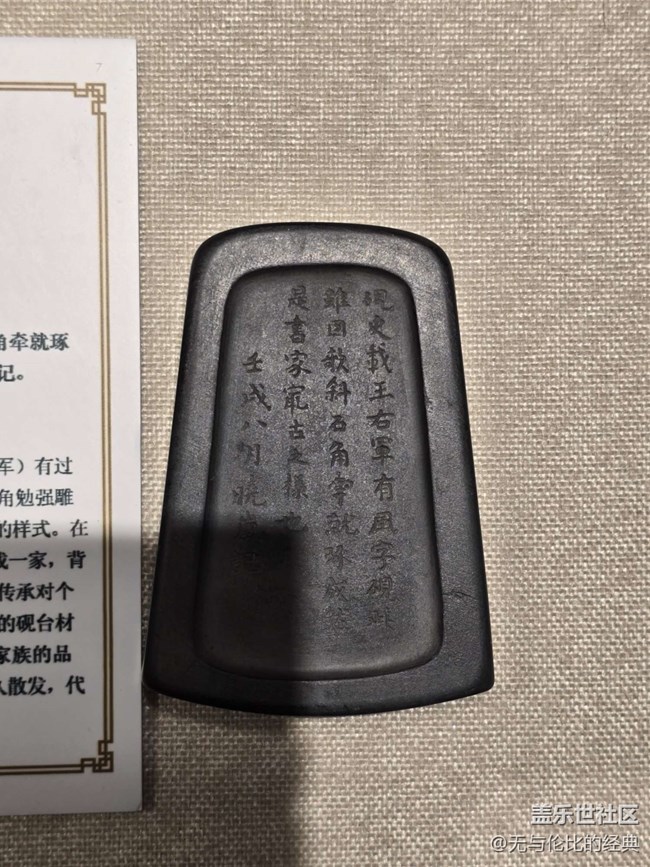 角牵就琢
记。
军）有过
角勉强雕
的样式。在
成一家，背
传承对个
的砚台材
家族的品
人散发，代
史载王右军有风字砚
雖因秋斜石角牵就琢成
是書家最古之樣也
壬戌八月曉
盖乐世社区
@无与伦比的经典